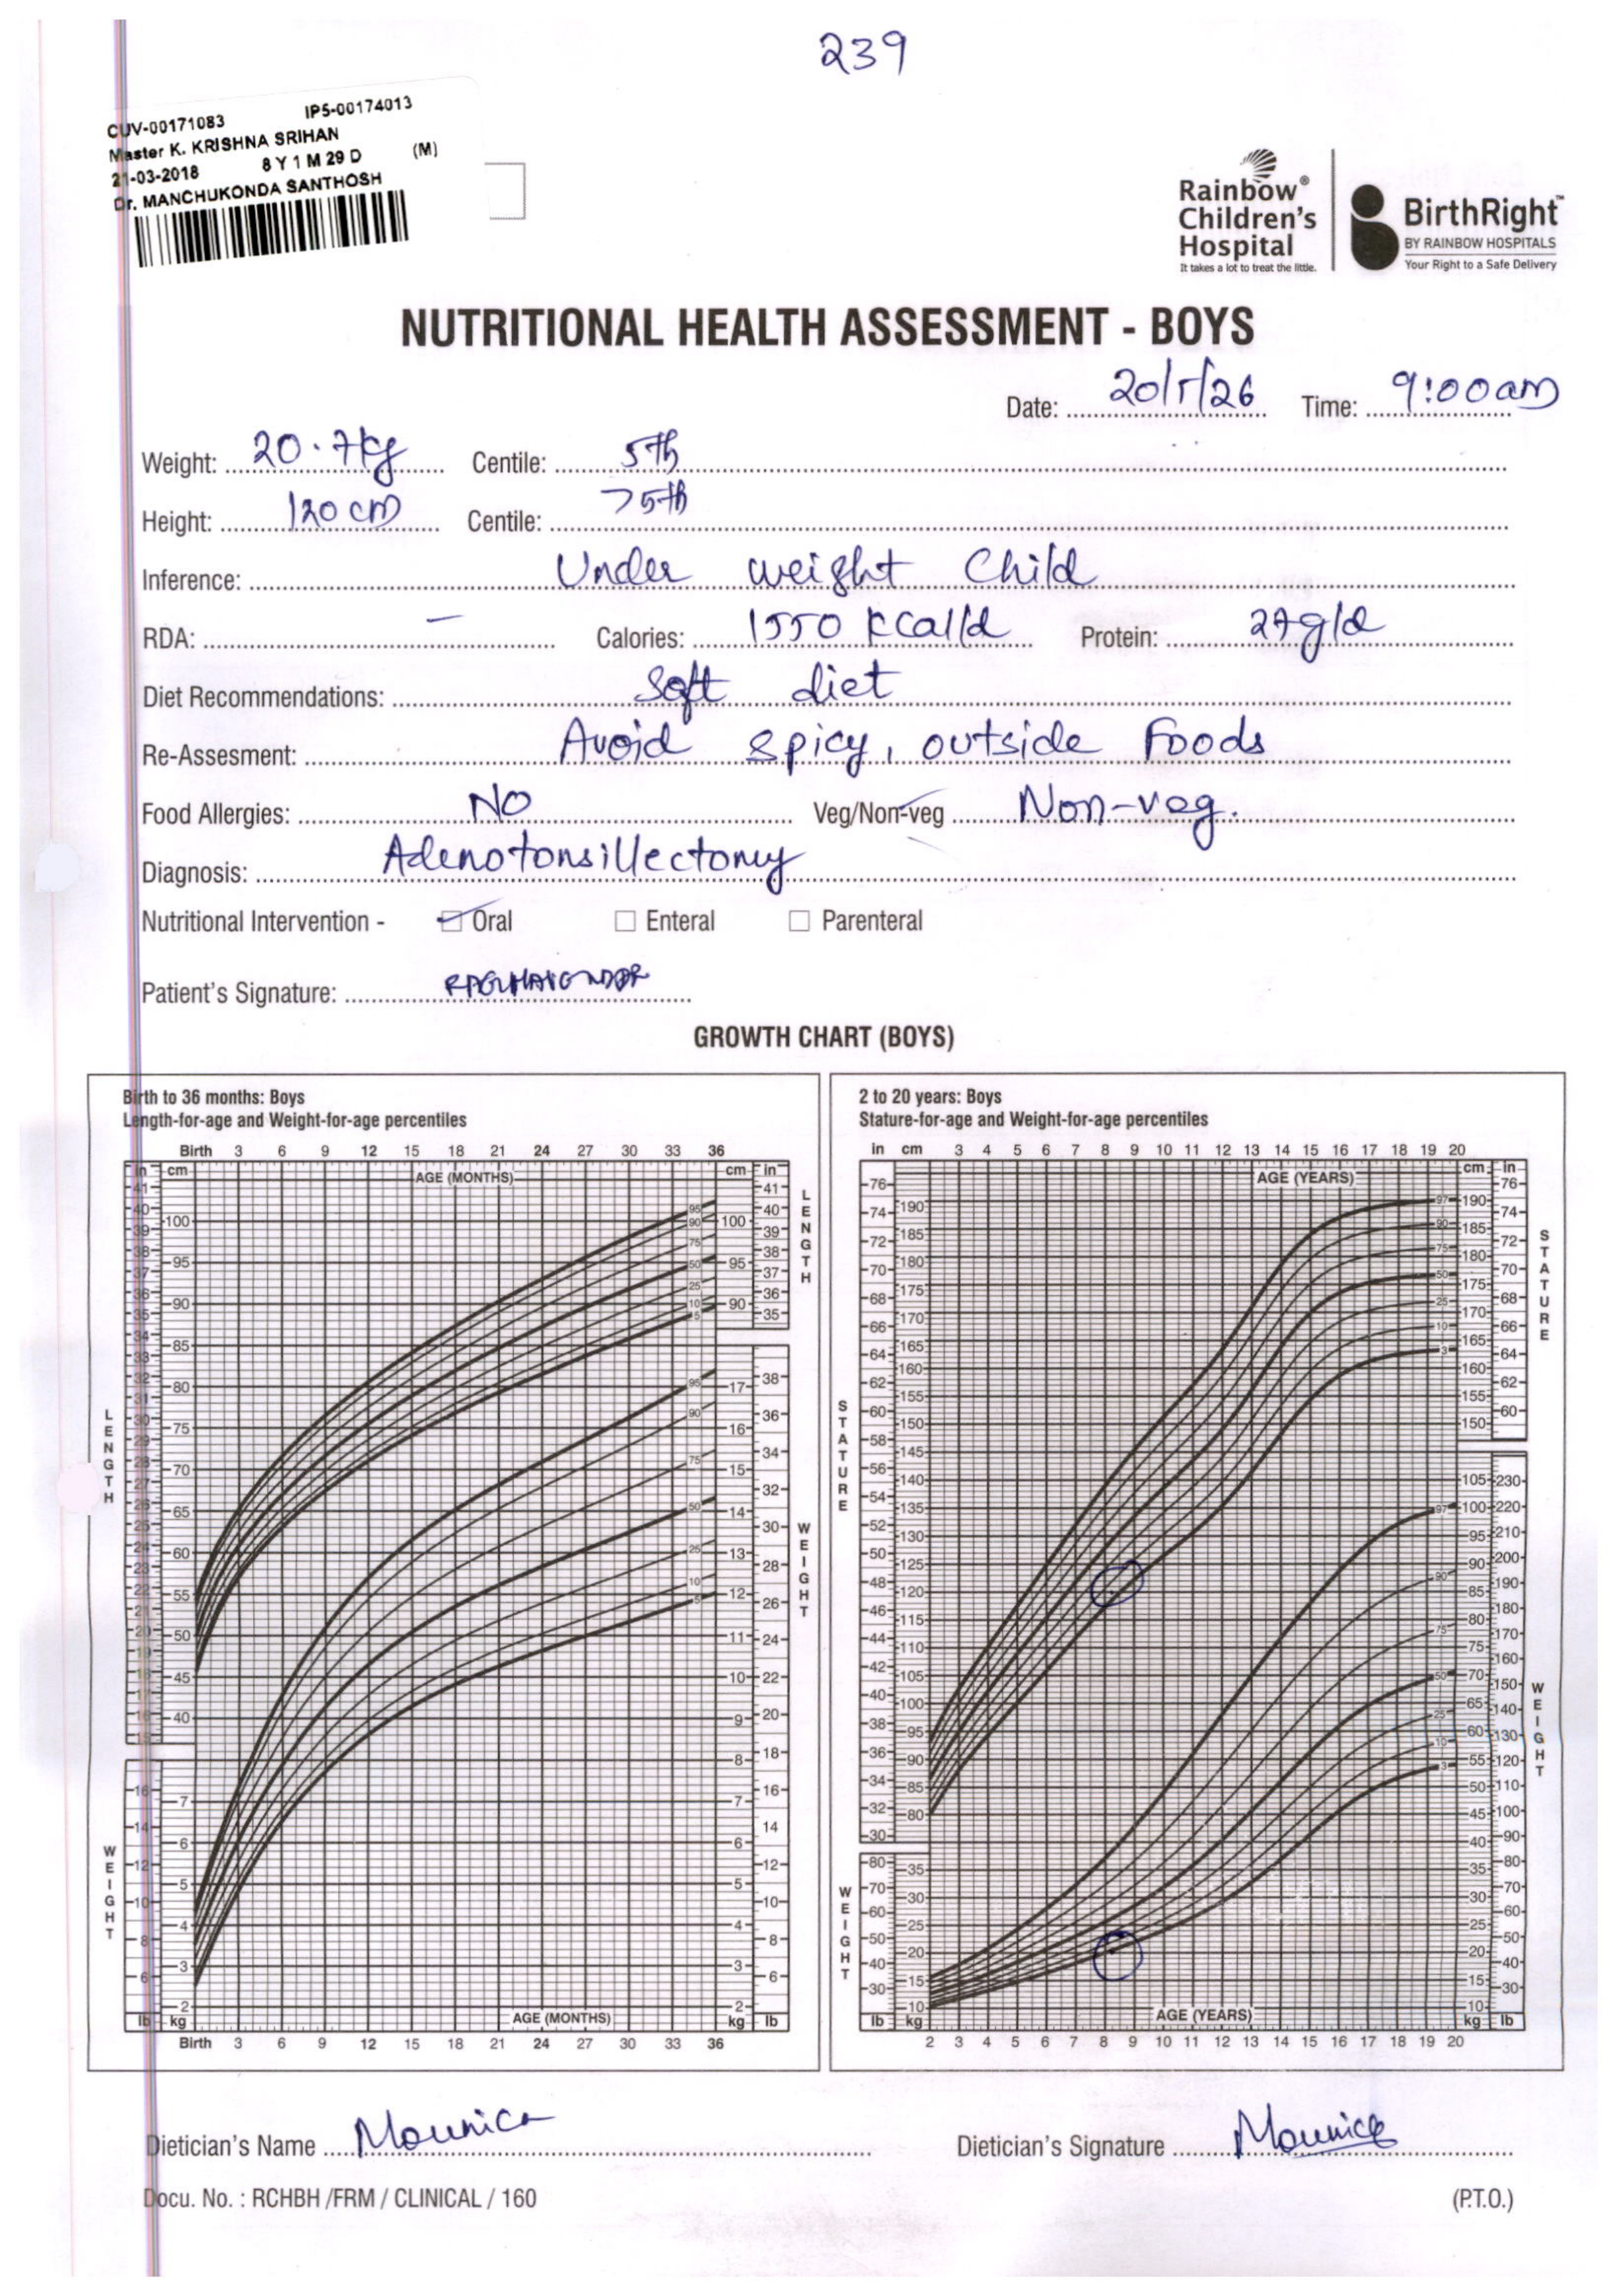 239
CUV-00171083 IP5-00174013
Master K. KRISHNA SRIHAN
21-03-2018 8 Y 1 M 29 D (M)
Dr. MANCHUKONDA SANTHOSH
Rainbow® Children's Hospital
It takes a lot to treat the little.
BirthRight™
BY RAINBOW HOSPITALS
Your Right to a Safe Delivery
NUTRITIONAL HEALTH ASSESSMENT - BOYS
Date: 20/5/26 Time: 9:00am
Weight: 20.7kg Centile: 5th
Height: 120 cm Centile: >5th
Inference: Under weight Child
RDA: – Calories: 1550 kcal/d Protein: 27g/d
Diet Recommendations: Soft diet
Re-Assesment: Avoid spicy, outside Foods
Food Allergies: NO Veg/Non-veg Non-veg.
Diagnosis: Adenotonsillectomy
Nutritional Intervention - Oral Enteral Parenteral
Patient's Signature:
GROWTH CHART (BOYS)
Birth to 36 months: Boys
Length-for-age and Weight-for-age percentiles
Birth 3 6 9 12 15 18 21 24 27 30 33 36
AGE (MONTHS)
LENGTH
WEIGHT
AGE (MONTHS)
lb kg kg lb
Birth 3 6 9 12 15 18 21 24 27 30 33 36
2 to 20 years: Boys
Stature-for-age and Weight-for-age percentiles
in cm 3 4 5 6 7 8 9 10 11 12 13 14 15 16 17 18 19 20
AGE (YEARS)
STATURE
WEIGHT
AGE (YEARS)
lb kg kg lb
2 3 4 5 6 7 8 9 10 11 12 13 14 15 16 17 18 19 20
Dietician's Name Mounica
Dietician's Signature Mounica
Docu. No. : RCHBH /FRM / CLINICAL / 160
(P.T.O.)